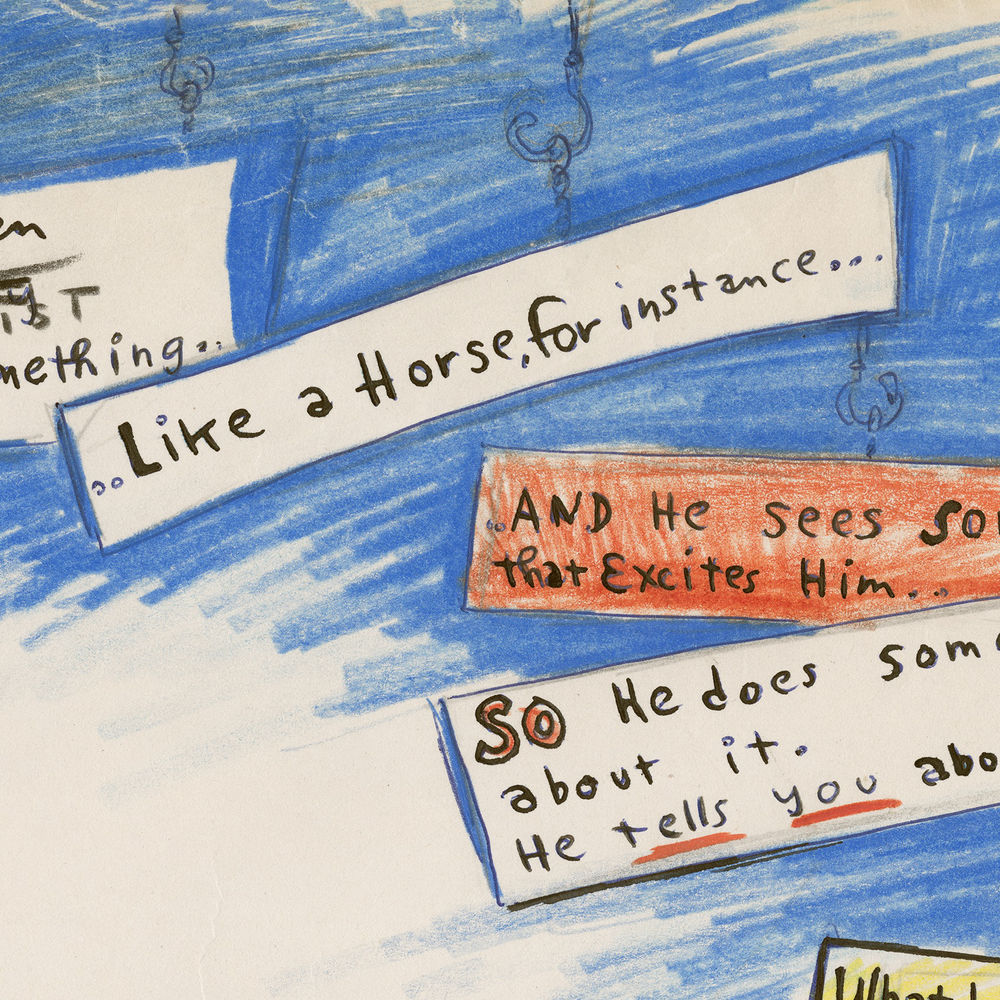 en
mething..
..Like a Horse, for instance...
..AND He sees so
that Excites Him...
So He does som
about it.
He tells you abo
What